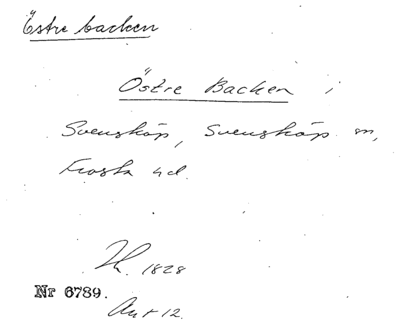 Östre backen
Östre Backen i
Svensköp, Svensköp sn,
Frosta hd.
1828
Nr 6789.
12.